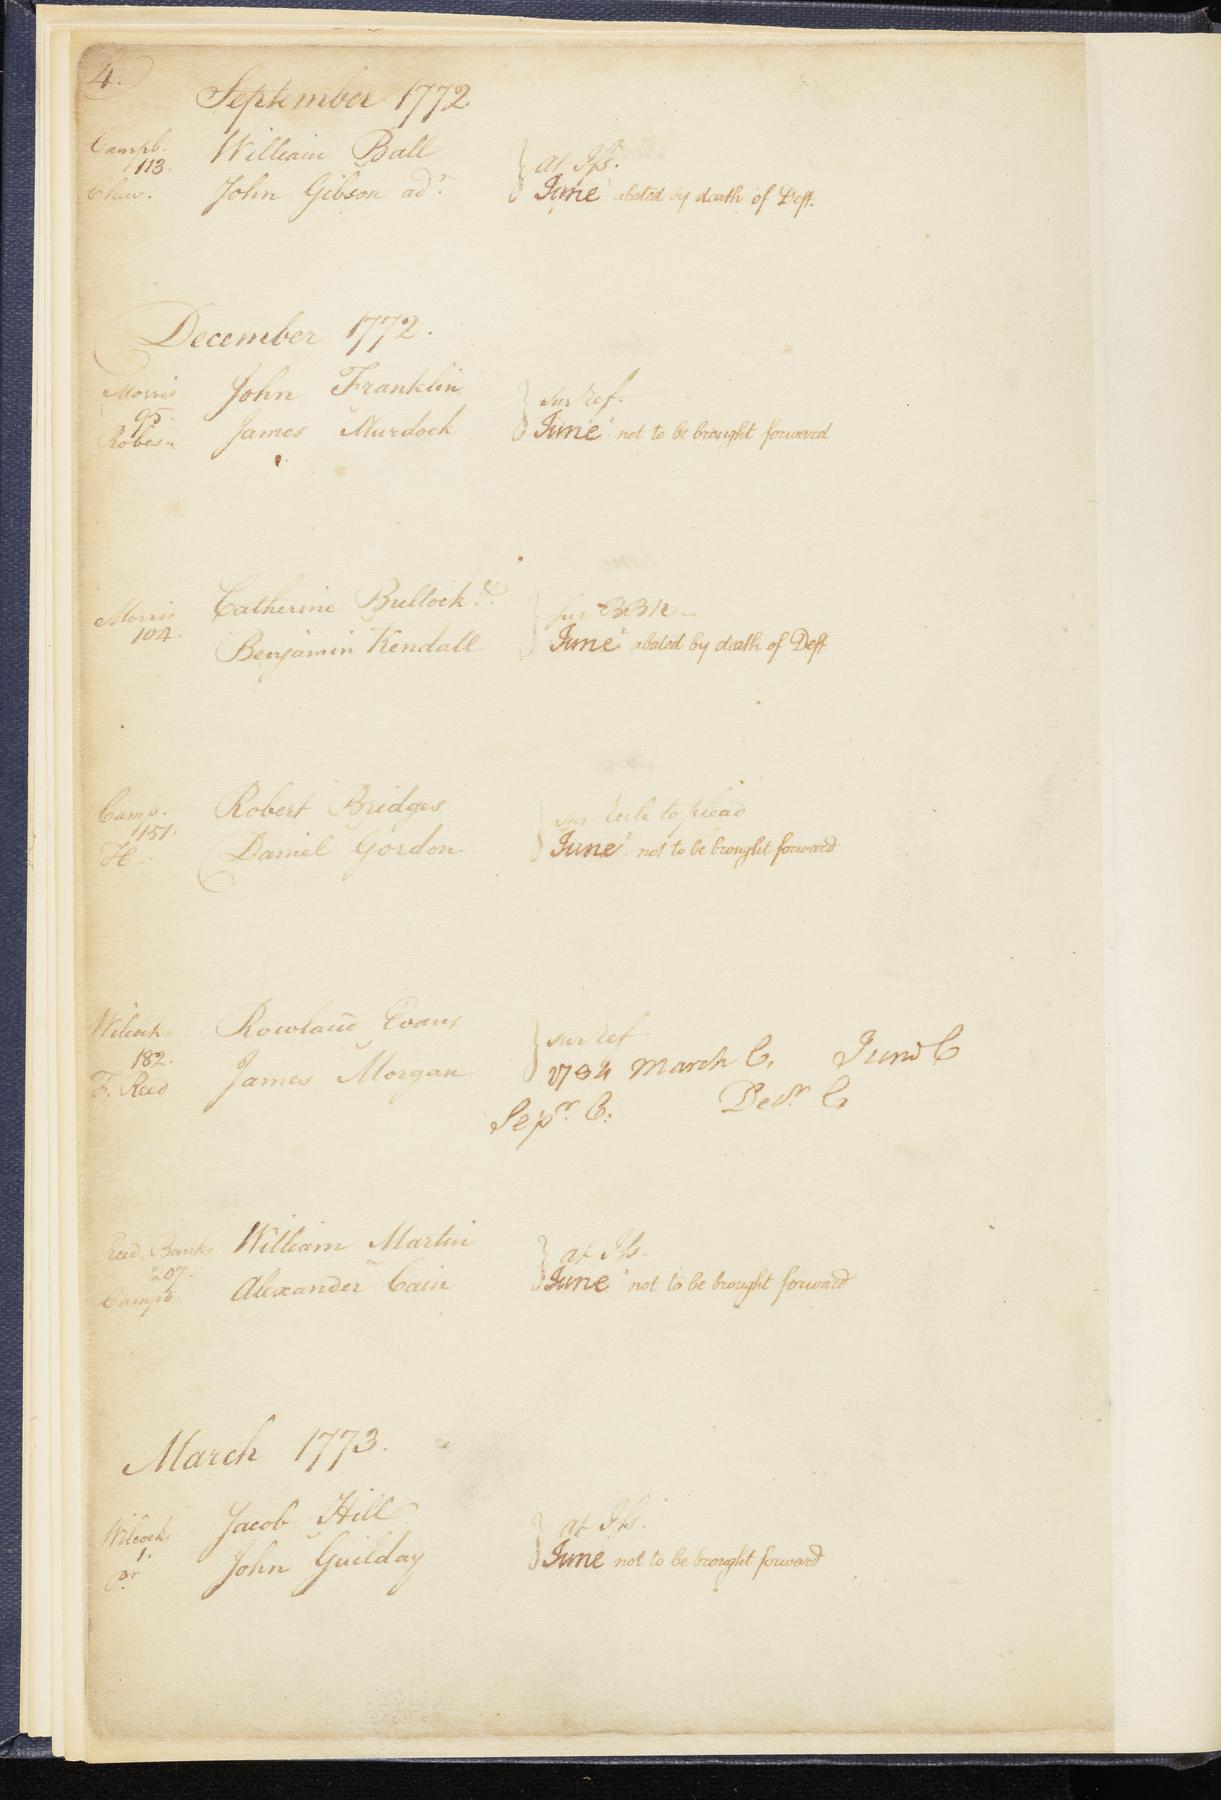 4.
September 1772
Campb. William Ball } at Iss.
113.
Chew. John Gibson adr. June abated by death of Deft.
December 1772.
Morris John Franklin } sur ref.
95.
Robes.. James Murdock June not to be brought forward
Catherine Bullock &c. } sur BBR
Morris
104. Benjamin Kendall June abated by death of Deft
Camp. Robert Bridges } sur Rule to plead
151.
H.. Daniel Gordon June not to be brought forward
Wilcocks Rowland Evans } sur ref
182. 1784 March C. June C
F. Reed James Morgan
Sepr. C. Decr. C
Reed, Banks William Martin } at Iss.
207.
Campb. Alexander Cain June not to be brought forward
March 1773.
Wilcocks Jacob Hill } at Iss.
1.
pr John Guilday June not to be brought forward